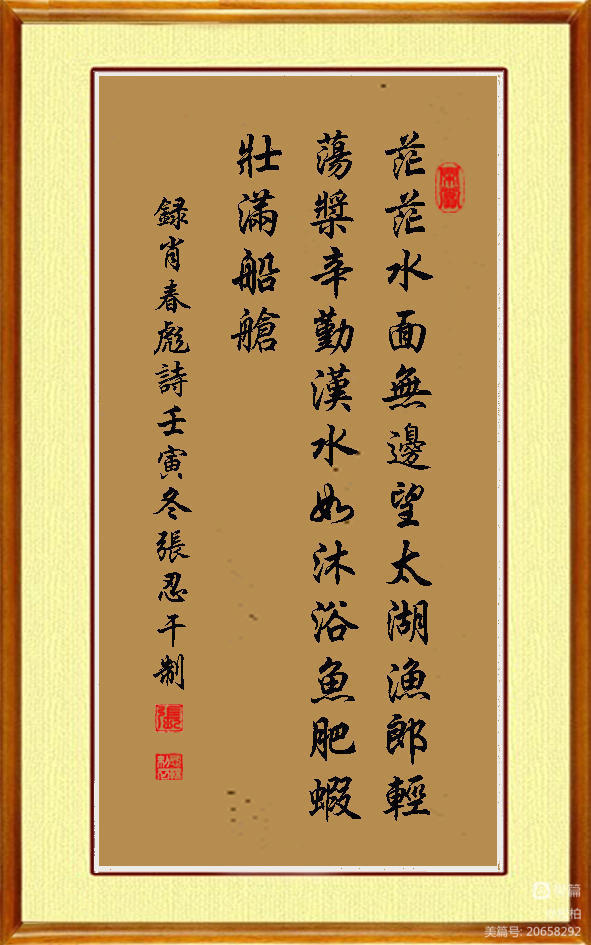 茫茫水面無邊望太湖漁郎輕
蕩槳辛勤漢水如沐浴魚肥蝦
壯滿船艙
録肖春彪詩壬寅冬張忍干制
張
美篇号: 20658292